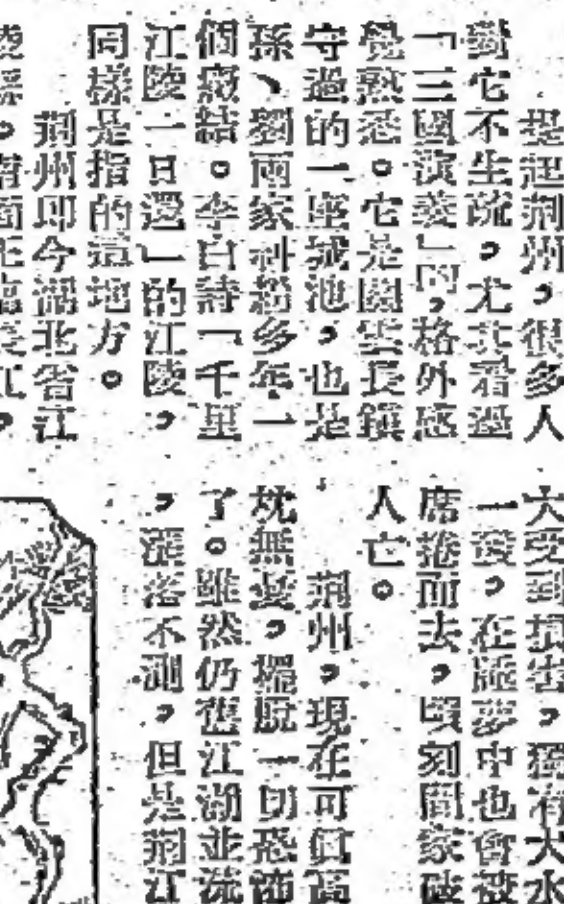 提起荆州，很多人
對它不生疏，尤其看過
「三國演義」的，格外感
覺熟悉。它是關雲長鎮
守過的一座城池，也是
孫、劉兩家糾紛多年一
個癥結。李白詩「千里
江陵一日還」的江陵，
同樣是指的這地方。
荆州即今湖北省江
大受到損害，獨有大水
一發，在睡夢中也會被
席捲而去，頃刻間家破
人亡。
荆州，現在可真高
枕無憂，擺脫一切恐怖
了。雖然仍舊江湖並流
，漲落不測，但是荆江